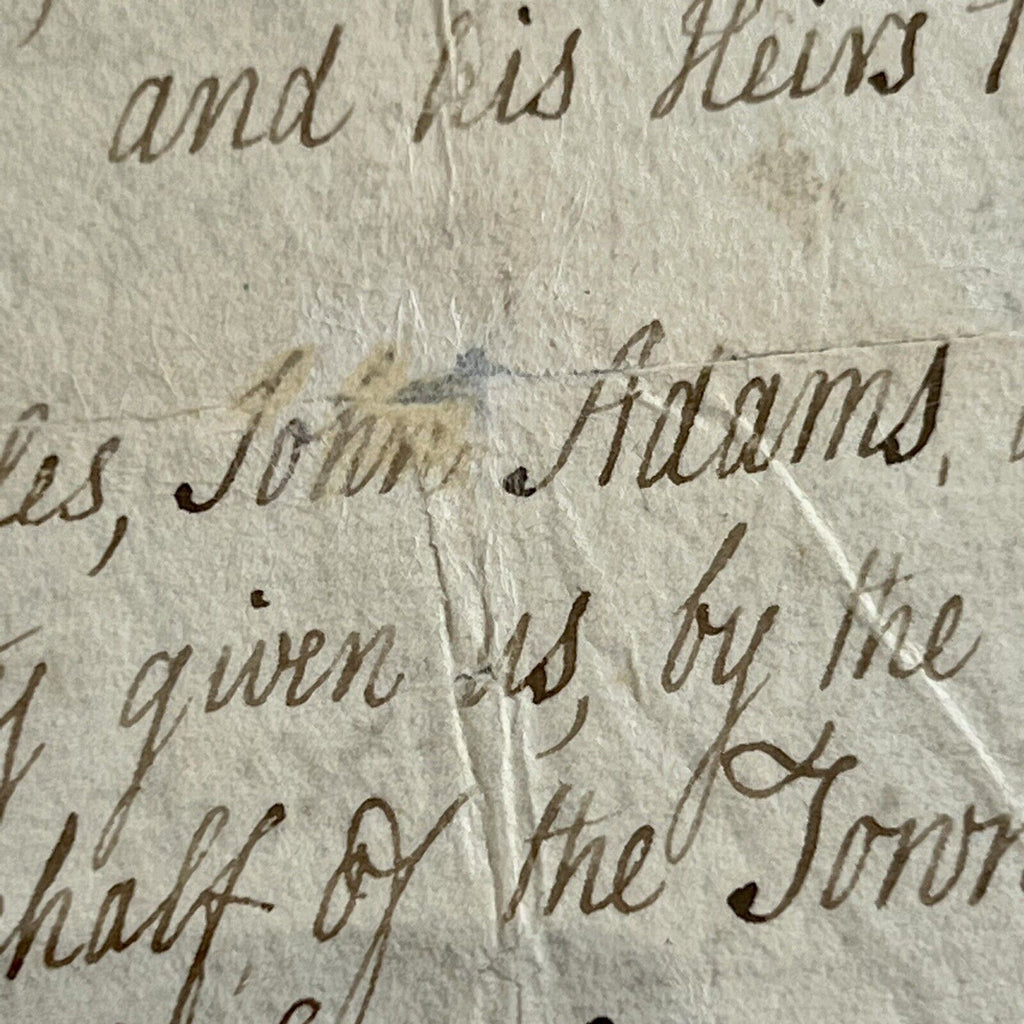 and his Heirs
les, John Adams,
y given us, by the
ehalf Of the Town